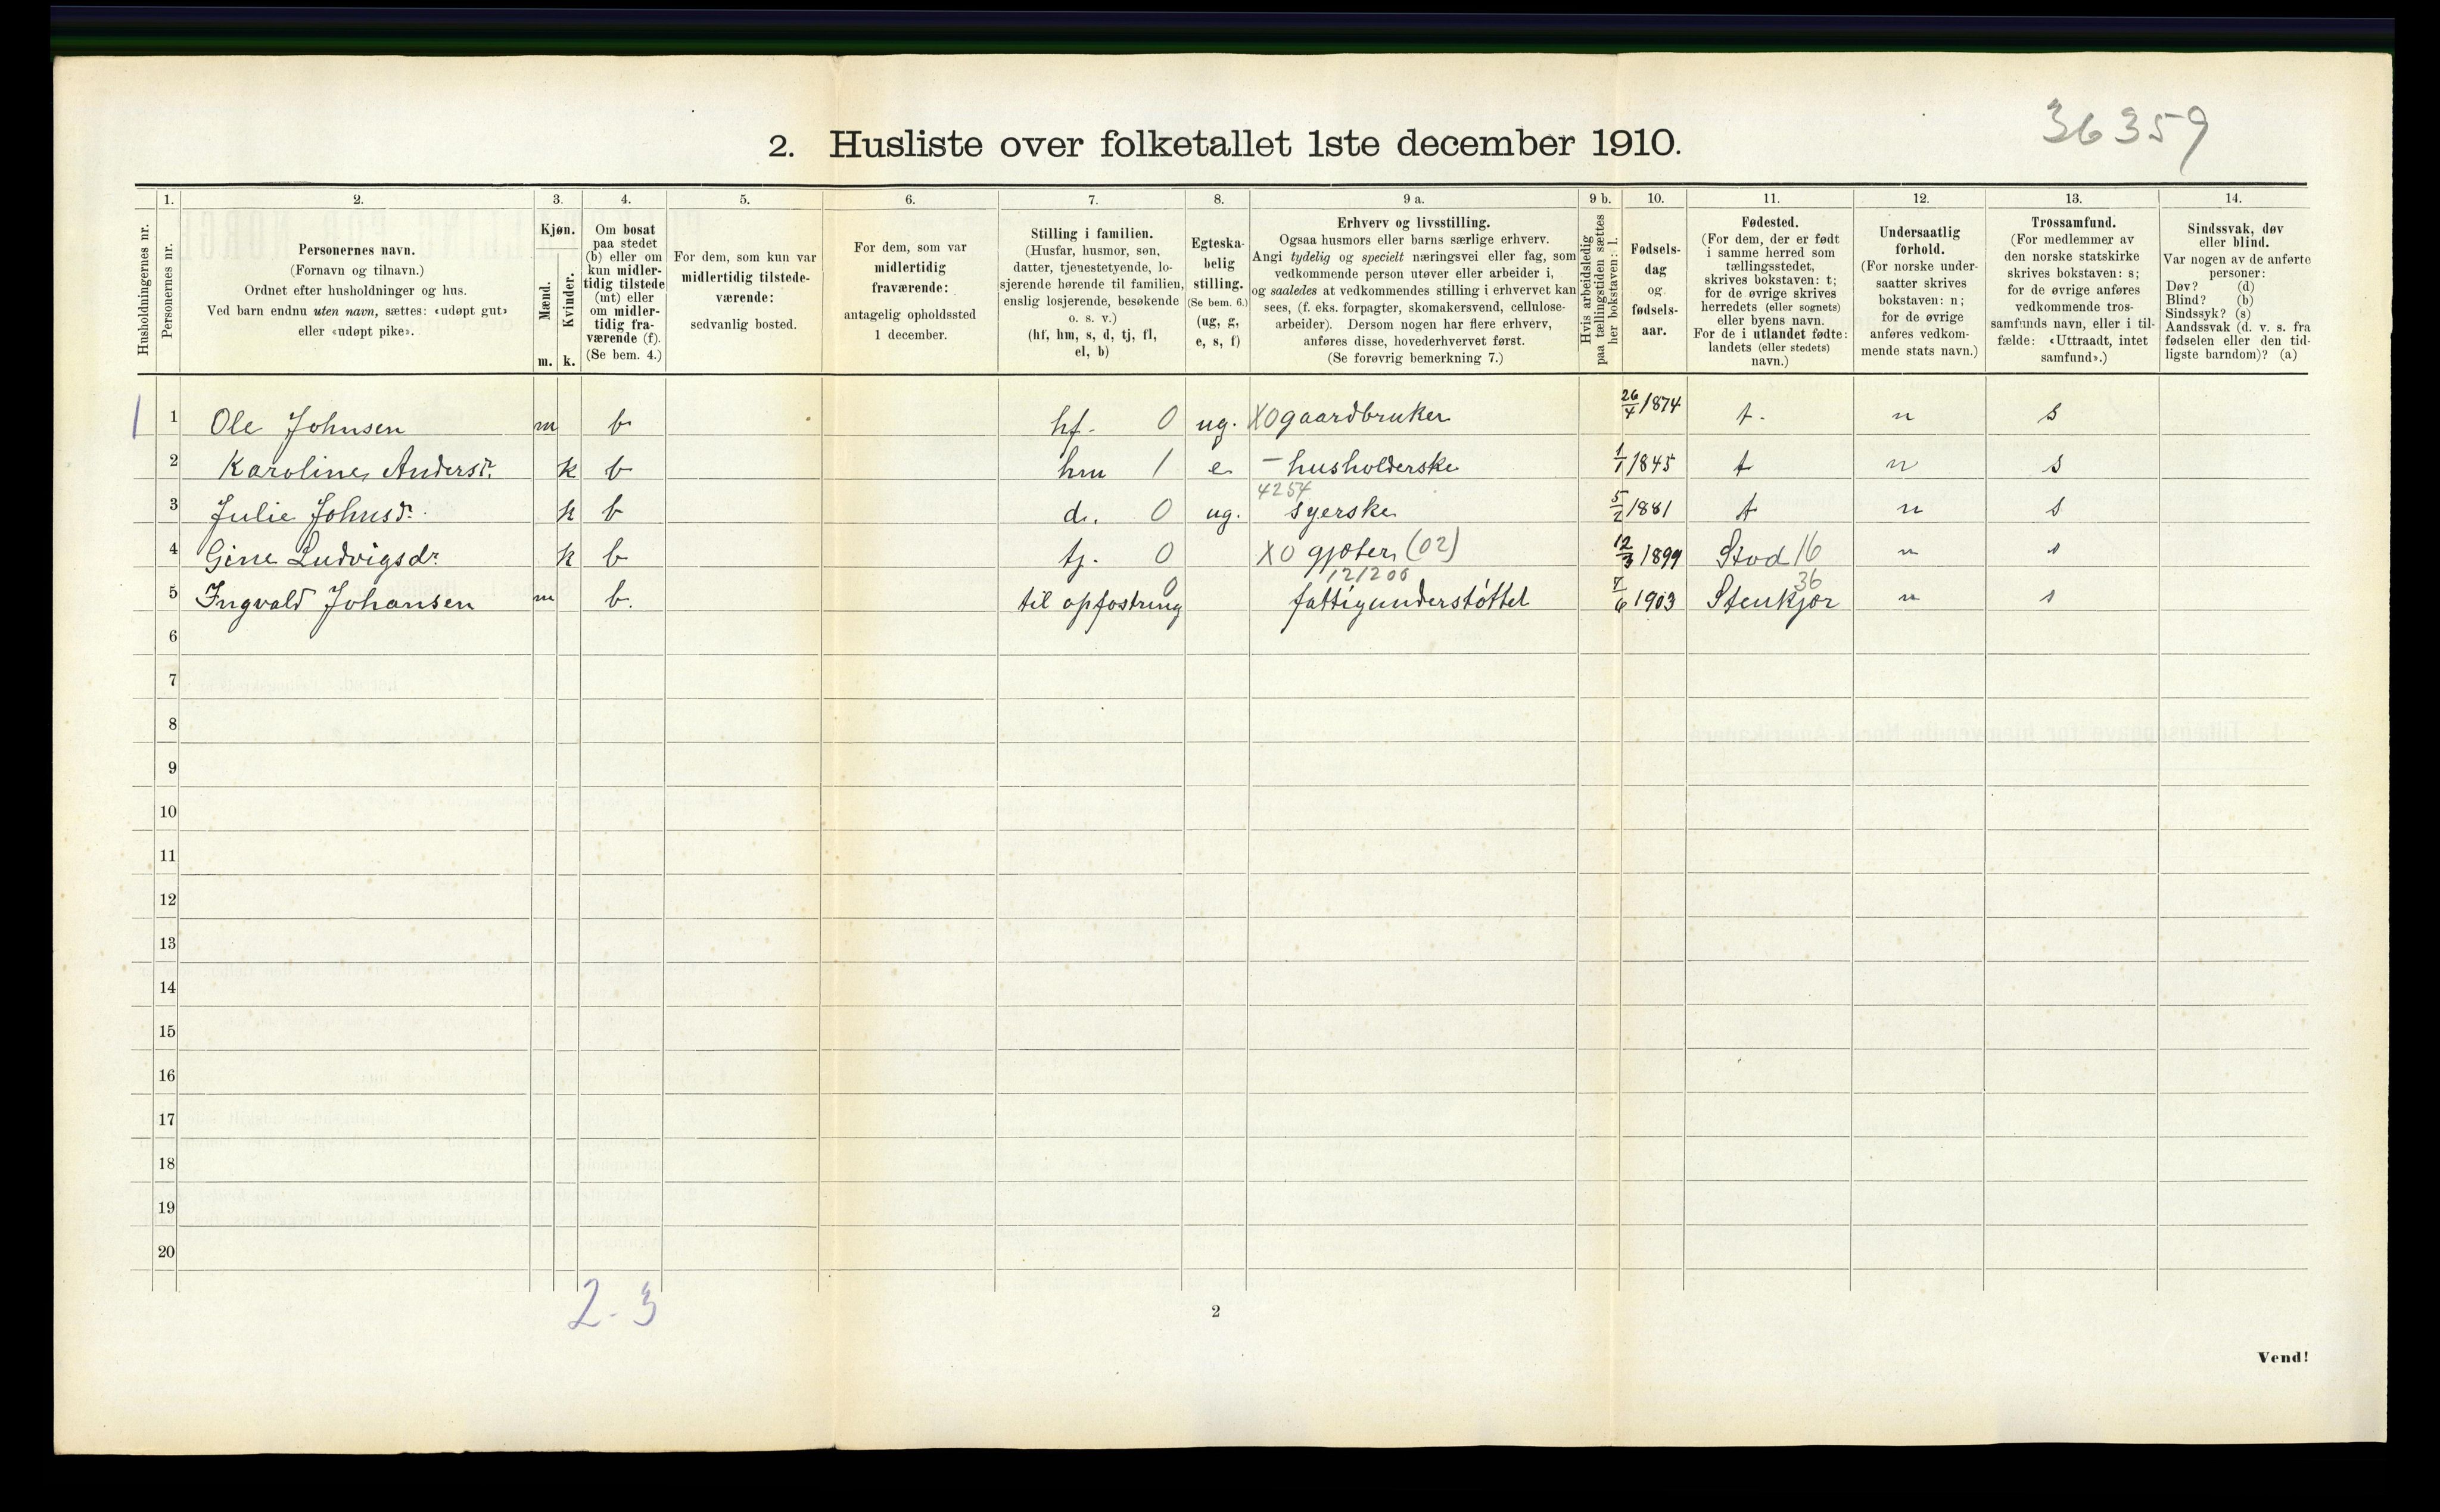 36359
2. Husliste over folketallet 1ste december 1910.
Husholdningernes nr.
1.
Personernes nr.
2.
Personernes navn.
(Fornavn og tilnavn.)
Ordnet efter husholdninger og hus.
Ved barn endnu uten navn, sættes: «udøpt gut»
eller «udøpt pike».
3.
Kjøn.
Mænd.
Kvinder.
m. k.
4.
Om bosat
paa stedet
(b) eller om
kun midler-
tidig tilstede
(mt) eller
om midler-
tidig fra-
værende (f).
(Se bem. 4.)
5.
For dem, som kun var
midlertidig tilstede-
værende:
sedvanlig bosted.
6.
For dem, som var
midlertidig
fraværende:
antagelig opholdssted
1 december.
7.
Stilling i familien.
(Husfar, husmor, søn,
datter, tjenestetyende, lo-
sjerende hørende til familien,
enslig losjerende, besøkende
o. s. v.)
(hf, hm, s, d, tj, fl,
el, b)
8.
Egteska-
belig
stilling.
(Se bem. 6.)
(ug, g,
e, s, f)
9 a.
Erhverv og livsstilling.
Ogsaa husmors eller barns særlige erhverv.
Angi tydelig og specielt næringsvei eller fag, som
vedkommende person utøver eller arbeider i,
og saaledes at vedkommendes stilling i erhvervet kan
sees, (f. eks. forpagter, skomakersvend, cellulose-
arbeider). Dersom nogen har flere erhverv,
anføres disse, hovederhvervet først.
(Se forøvrig bemerkning 7.)
9 b.
Hvis arbeidsledig
paa tællingstiden sættes
her bokstaven: l.
10.
Fødsels-
dag
og
fødsels-
aar.
11.
Fødested.
(For dem, der er født
i samme herred som
tællingsstedet,
skrives bokstaven: t;
for de øvrige skrives
herredets (eller sognets)
eller byens navn.
For de i utlandet fødte:
landets (eller stedets)
navn.)
12.
Undersaatlig
forhold.
(For norske under-
saatter skrives
bokstaven: n;
for de øvrige
anføres vedkom-
mende stats navn.)
13.
Trossamfund.
(For medlemmer av
den norske statskirke
skrives bokstaven: s;
for de øvrige anføres
vedkommende tros-
samfunds navn, eller i til-
fælde: «Uttraadt, intet
samfund».)
14.
Sindssvak, døv
eller blind.
Var nogen av de anførte
personer:
Døv? (d)
Blind? (b)
Sindssyk? (s)
Aandssvak (d. v. s. fra
fødselen eller den tid-
ligste barndom)? (a)
1 1 Ole Johnsen m b hf. 0 ug. X0 gaardbruker 26/4 1874 t. n s
2 Karoline Andersd. k b hm 1 e - husholderske 1/1 1845 t n s
4254
3 Julie Johnsd. k b d. 0 ug. syerske 5/2 1881 t n s
4 Gine Ludvigsdr. k b tj. 0 X0 gjæter (02) 12/3 1899 Stod 16 n s
0 121200 36
5 Ingvald Johansen m b. til opfostring fattigunderstøttet 7/6 1903 Stenkjær n s
6
7
8
9
10
11
12
13
14
15
16
17
18
19
20
2-3
2
Vend!